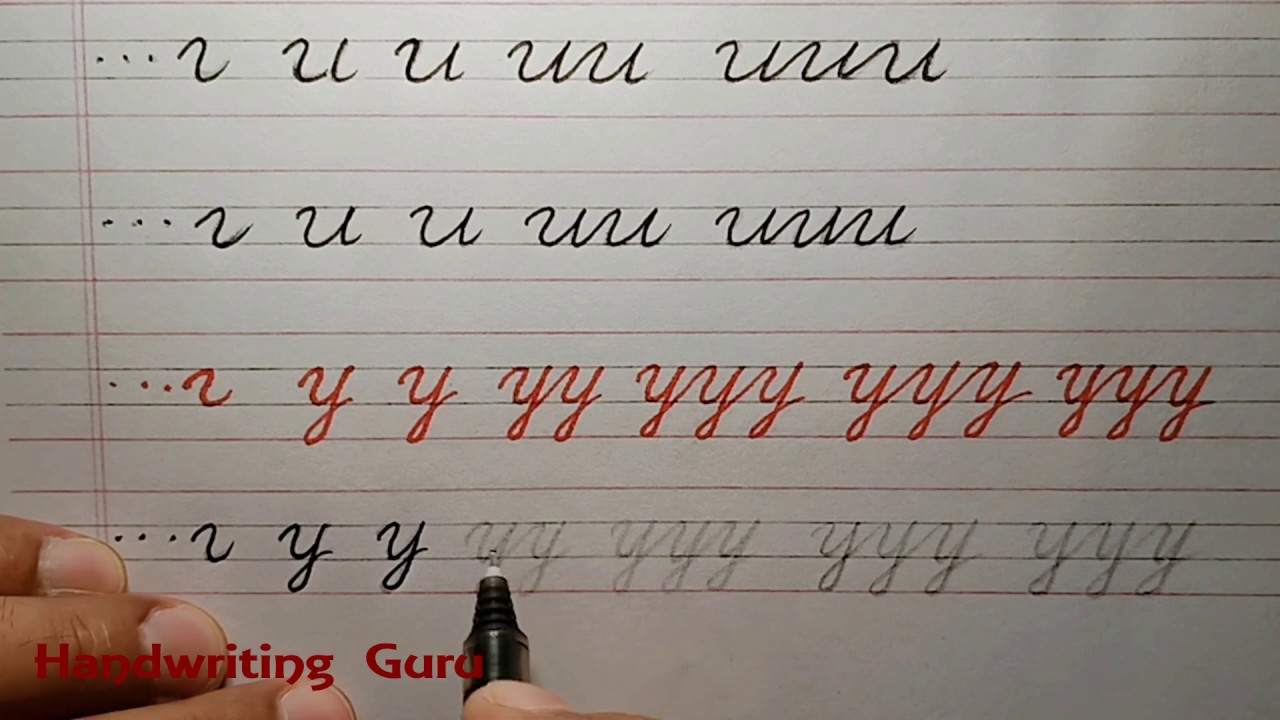 ... ι u u uu uuu
... ι u u uu uuu
... ι y y yy yyy yyy yyy
... ι y y yy yyy yyy yyy
Handwriting Guru